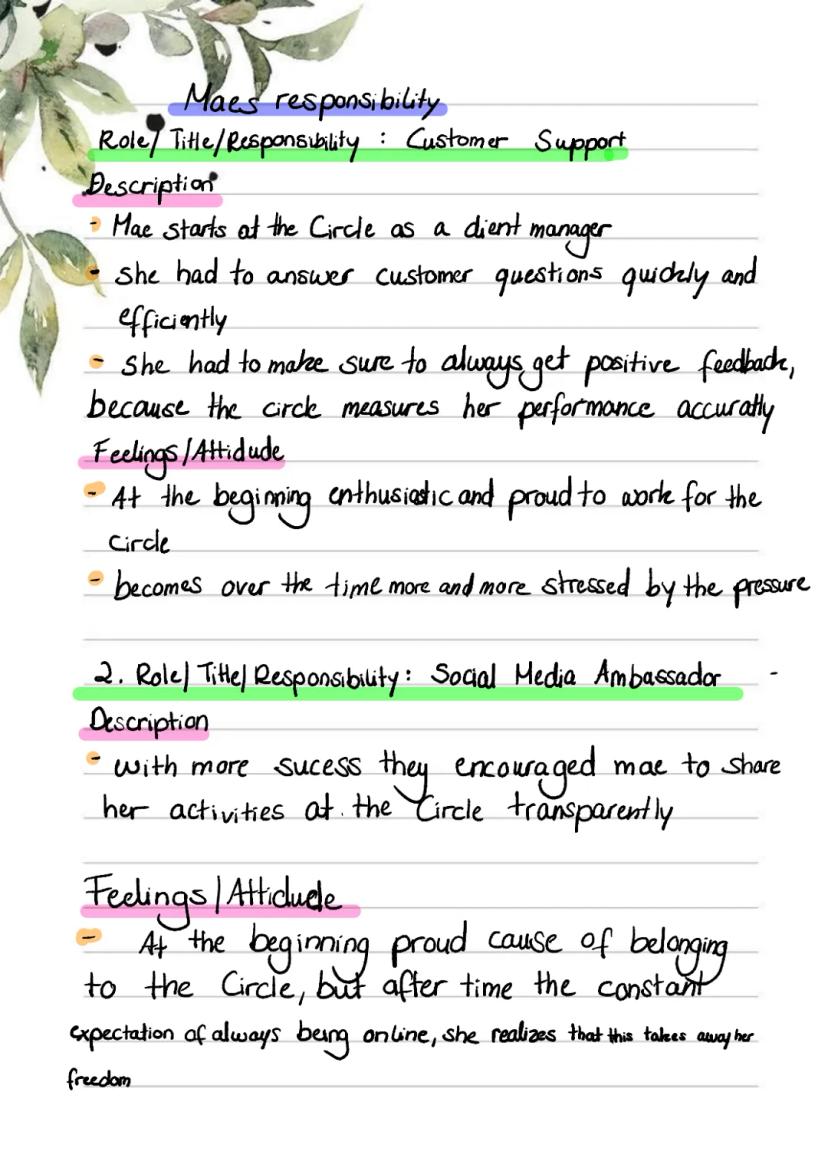 Maes responsibility
Role/Title/Responsibility : Customer Support
Description
- Mae starts at the Circle as a client manager
- she had to answer customer questions quickly and
efficiently
- she had to make sure to always get positive feedback,
because the circle measures her performance accuratly
Feelings/Attidude
- At the beginning enthusiastic and proud to work for the
Circle
- becomes over the time more and more stressed by the pressure
2. Role/Title/Responsibility: Social Media Ambassador -
Description
- with more sucess they encouraged mae to share
her activities at the Circle transparently
Feelings/Attidude
- At the beginning proud cause of belonging
to the Circle, but after time the constant
expectation of always being online, she realizes that this takes away her
freedom